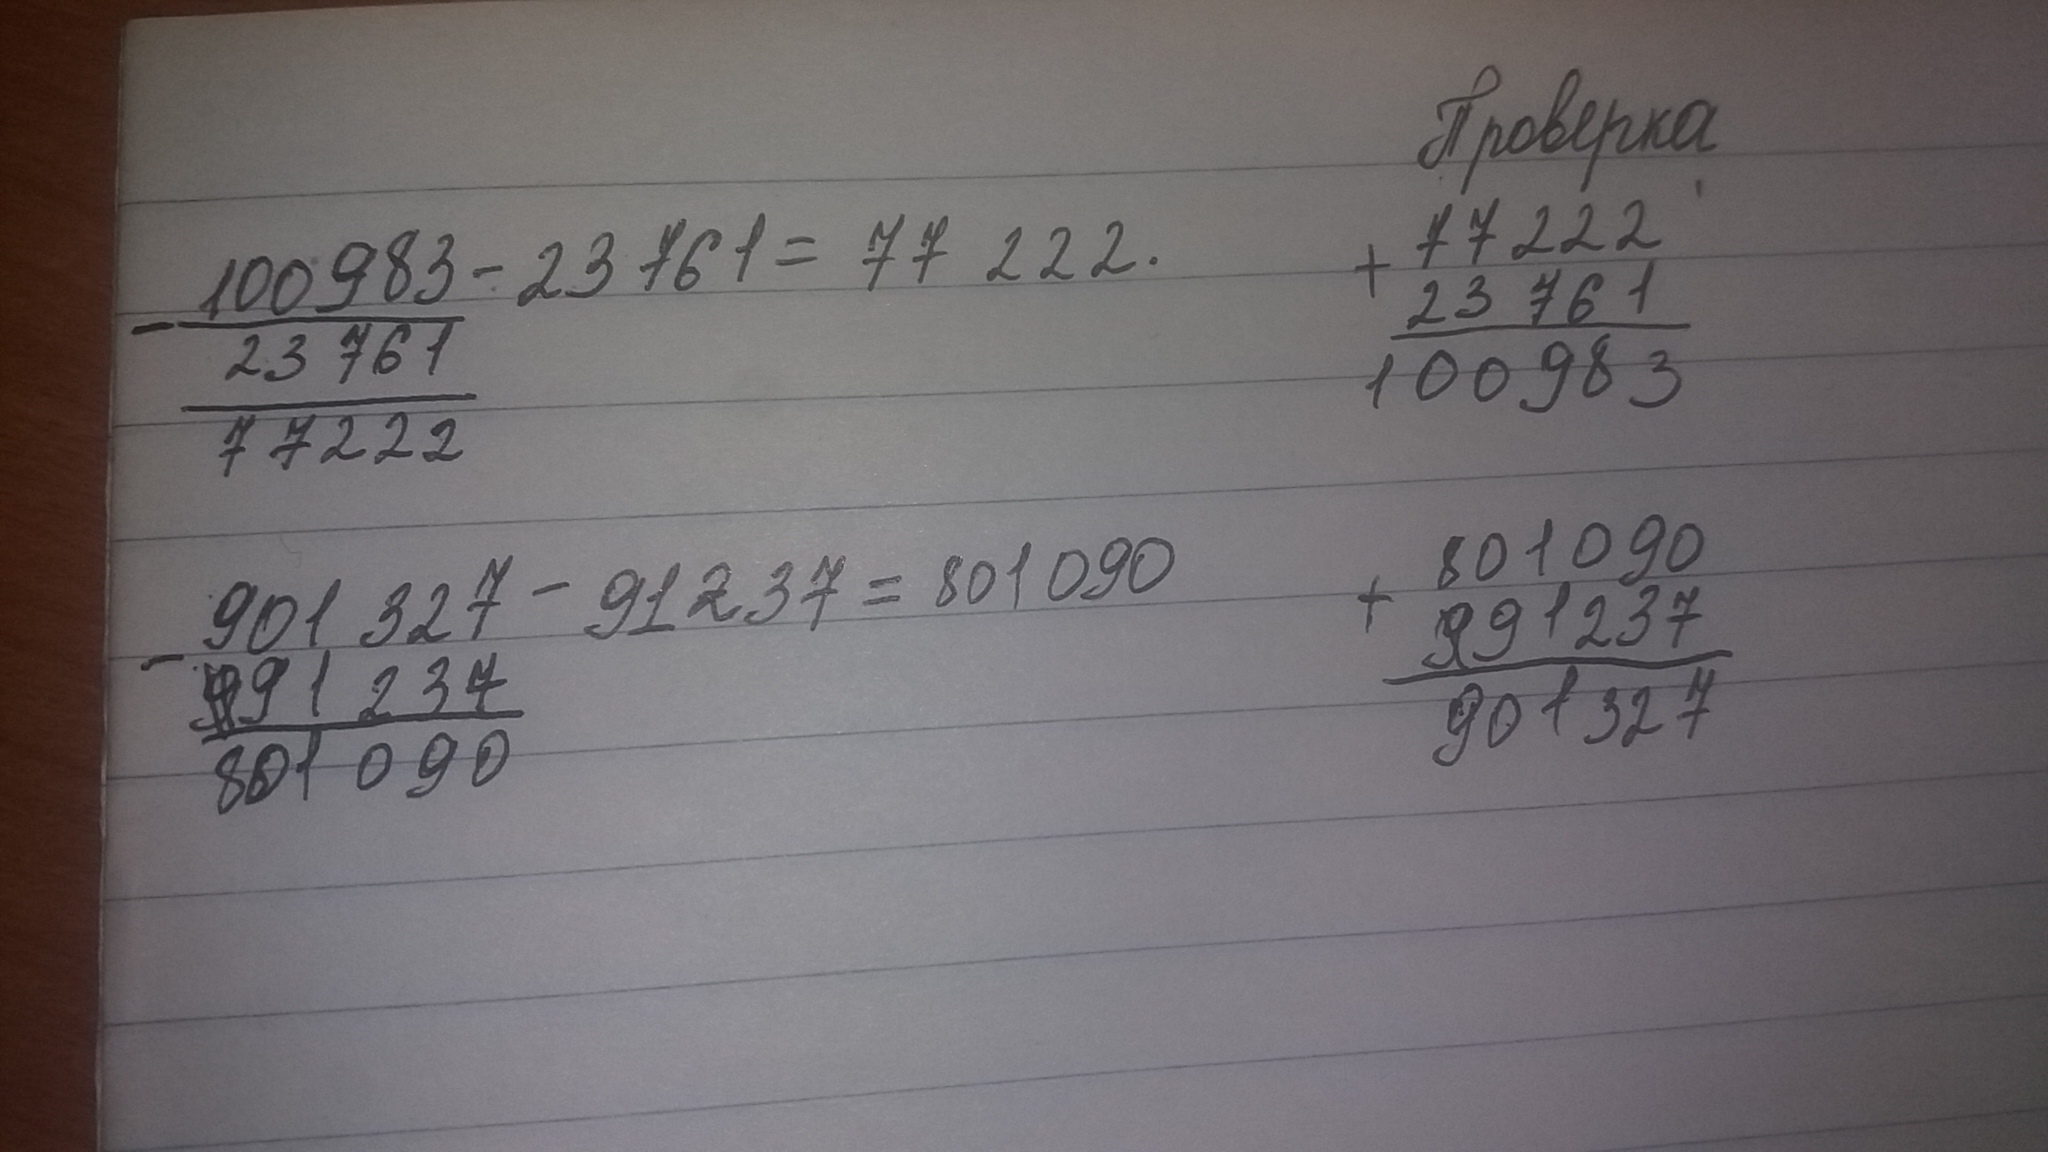 Проверка
100983 - 23 761 = 77 222.
- 23 761
77222
+ 77222
23 761
100983
901 327 - 91237 = 801090
- 91 237
801 090
+ 801090
91237
901327